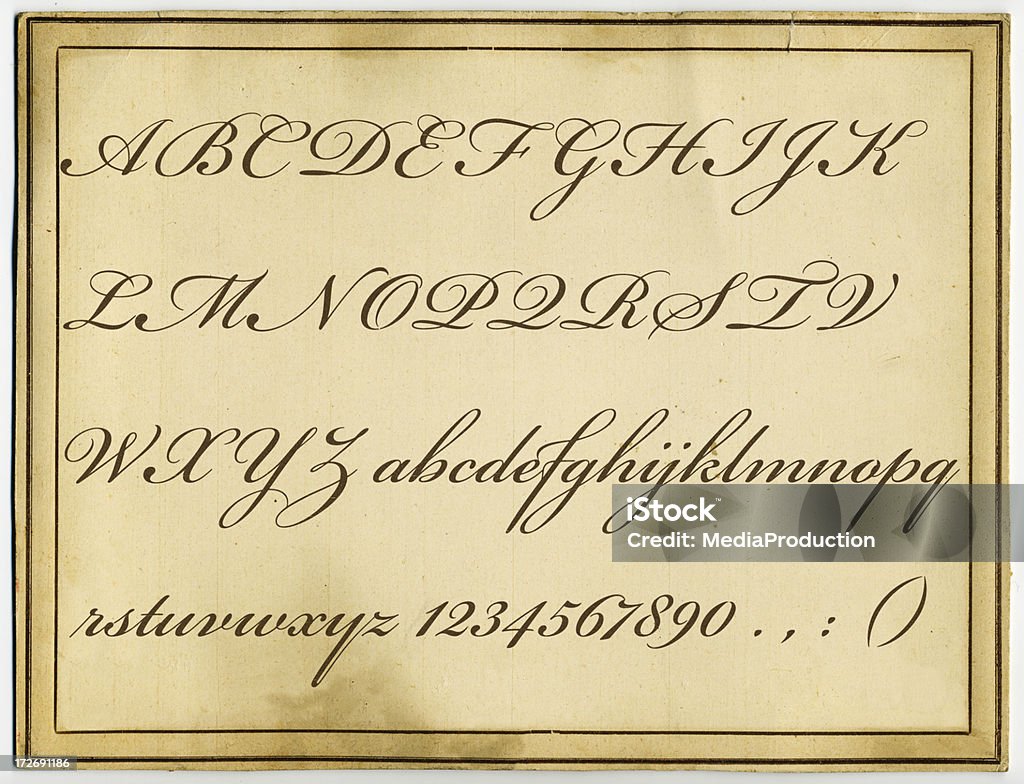 ABCDEFGHIJK
LMNOPQRSTV
WXYZ abcdefghijklmnopq
iStock™
MediaProduction
rstuvwxyz 1234567890 . , : ()
172691186